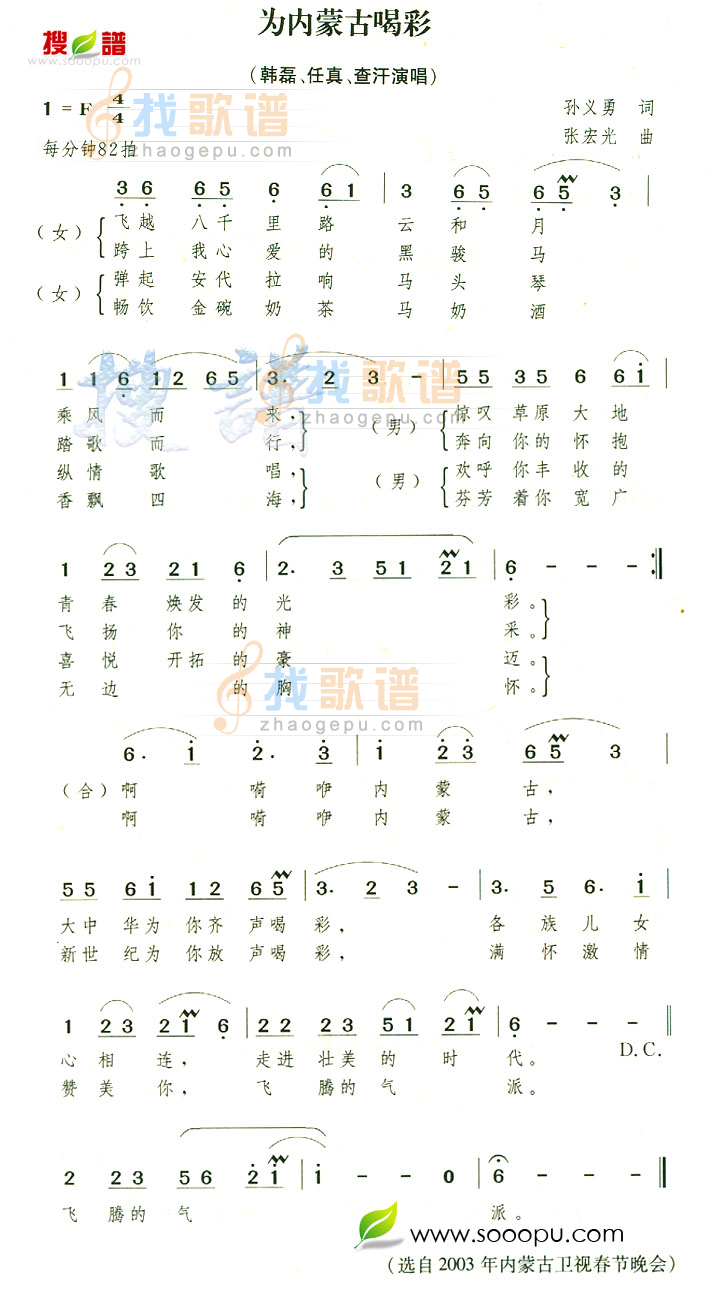 为内蒙古喝彩
搜谱
www.sooopu.com
(韩磊、任真、查汗演唱)
1 = F 4/4
孙义勇 词
每分钟82拍
张宏光 曲
找歌谱
zhaogepu.com
3 6 6 5 6 6 1 | 3 6 5 6 5 3 |
(女) 飞越 八千 里 路 云 和 月
跨上 我心 爱 的 黑 骏 马
(女) 弹起 安代 拉 响 马 头 琴
畅饮 金碗 奶 茶 马 奶 酒
1 1 6 1 2 6 5 | 3· 2 3 - | 5 5 3 5 6 6 i |
搜谱
找歌谱
zhaogepu.com
乘 风 而 来, (男) 惊叹 草原 大 地
踏 歌 而 行, 奔向 你的 怀 抱
纵 情 歌 唱, (男) 欢呼 你丰 收 的
香 飘 四 海, 芬芳 着你 宽 广
1 2 3 2 1 6 | 2· 3 5 1 2 1 | 6 - - - :||
青 春 焕发 的 光 彩。
飞 扬 你 的 神 采。
喜 悦 开拓 的 豪 迈。
无 边 的 胸 怀。
找歌谱
zhaogepu.com
6· i 2· 3 | i 2 3 6 5 3 |
(合) 啊 嗬 咿 内 蒙 古,
啊 嗬 咿 内 蒙 古,
5 5 6 i 1 2 6 5 | 3· 2 3 - | 3· 5 6· i |
大中 华为 你齐 声喝 彩, 各 族 儿 女
新世 纪为 你放 声喝 彩, 满 怀 激 情
1 2 3 2 1 6 | 2 2 2 3 5 1 2 1 | 6 - - - ||
心 相 连, 走进 壮美 的 时 代。 D.C.
赞 美 你, 飞 腾的 气 派。
2 2 3 5 6 2 i | i - - 0 | 6 - - - ||
飞 腾的 气 派。
www.sooopu.com
(选自 2003 年内蒙古卫视春节晚会)